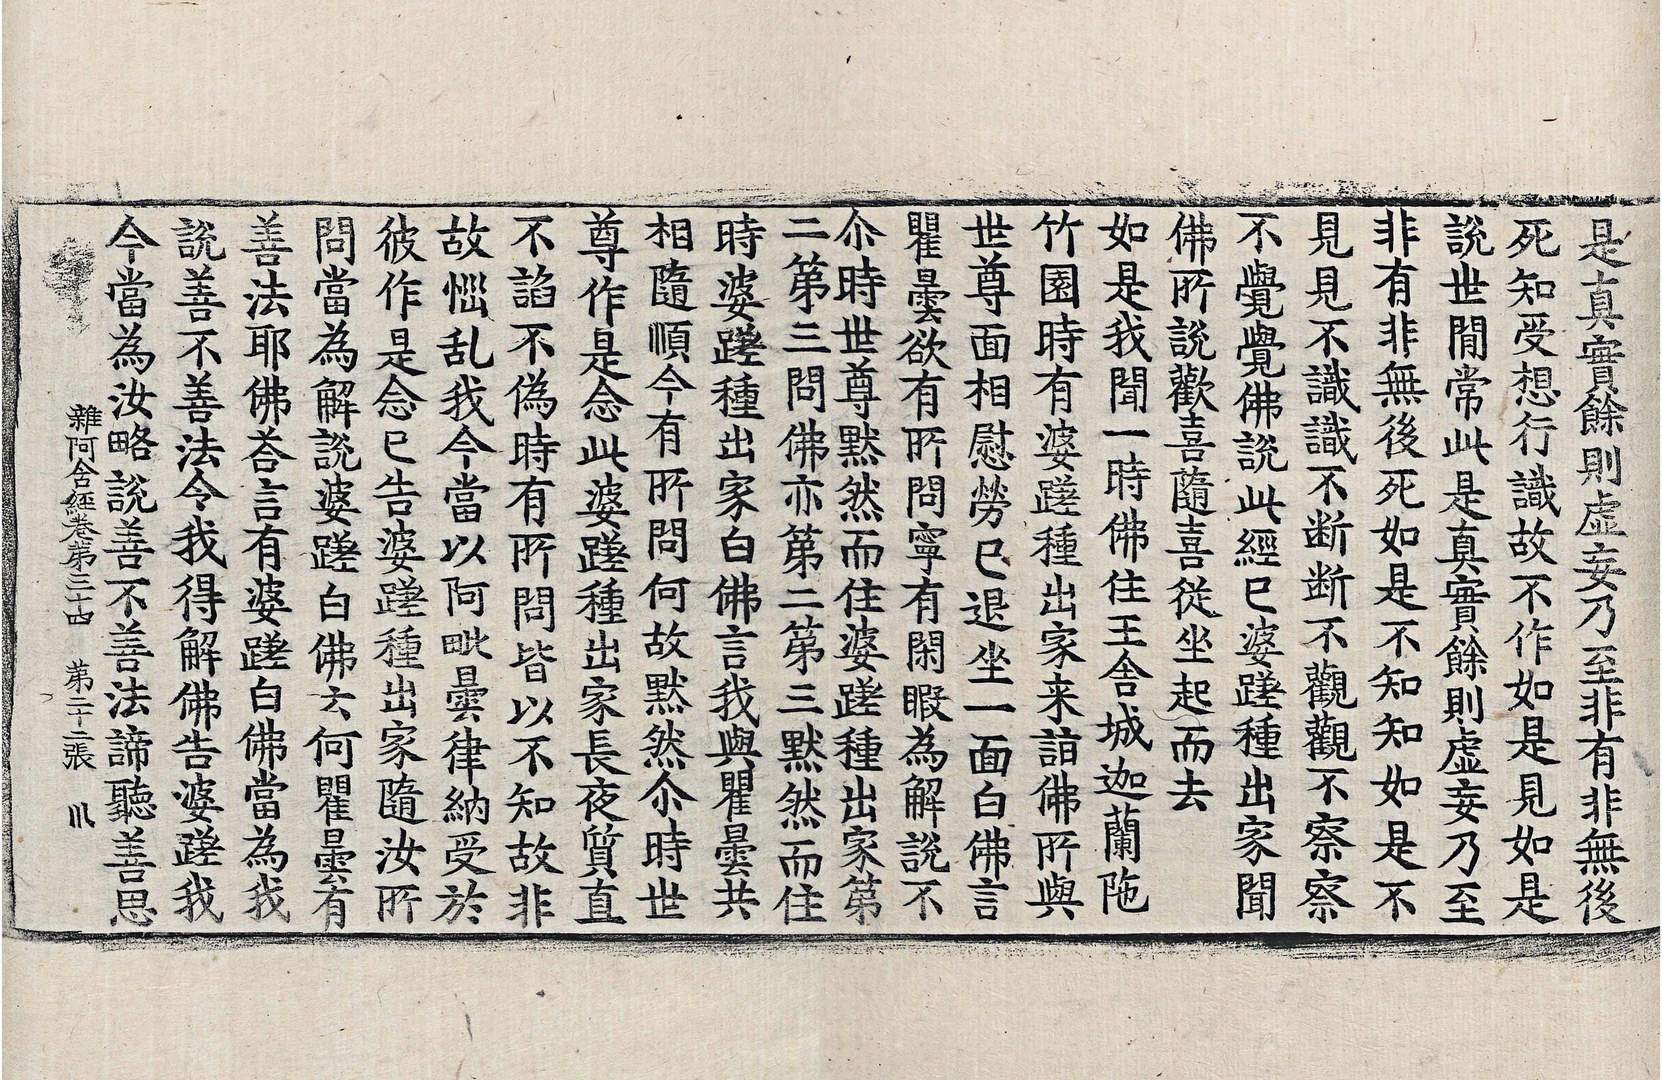 是真實餘則虛妄乃至非有非無後
死知受想行識故不作如是見如是
說世閒常此是真實餘則虛妄乃至
非有非無後死如是不知知如是不
見見不識識不断断不觀觀不察察
不覺覺佛說此經已婆蹉種出家聞
佛所說歡喜隨喜從坐起而去
如是我聞一時佛住王舍城迦蘭陁
竹園時有婆蹉種出家来詣佛所與
世尊面相慰勞已退坐一面白佛言
瞿曇欲有所問寧有閑暇為解說不
尒時世尊默然而住婆蹉種出家第
二第三問佛亦第二第三默然而住
時婆蹉種出家白佛言我與瞿曇共
相隨順今有所問何故默然尒時世
尊作是念此婆蹉種出家長夜質直
不諂不偽時有所問皆以不知故非
故惱乱我今當以阿毗曇律納受於
彼作是念已告婆蹉種出家隨汝所
問當為解說婆蹉白佛云何瞿曇有
善法耶佛荅言有婆蹉白佛當為我
說善不善法令我得解佛告婆蹉我
今當為汝略說善不善法諦聽善思
雜阿含經卷第三十四 第二十二張 川